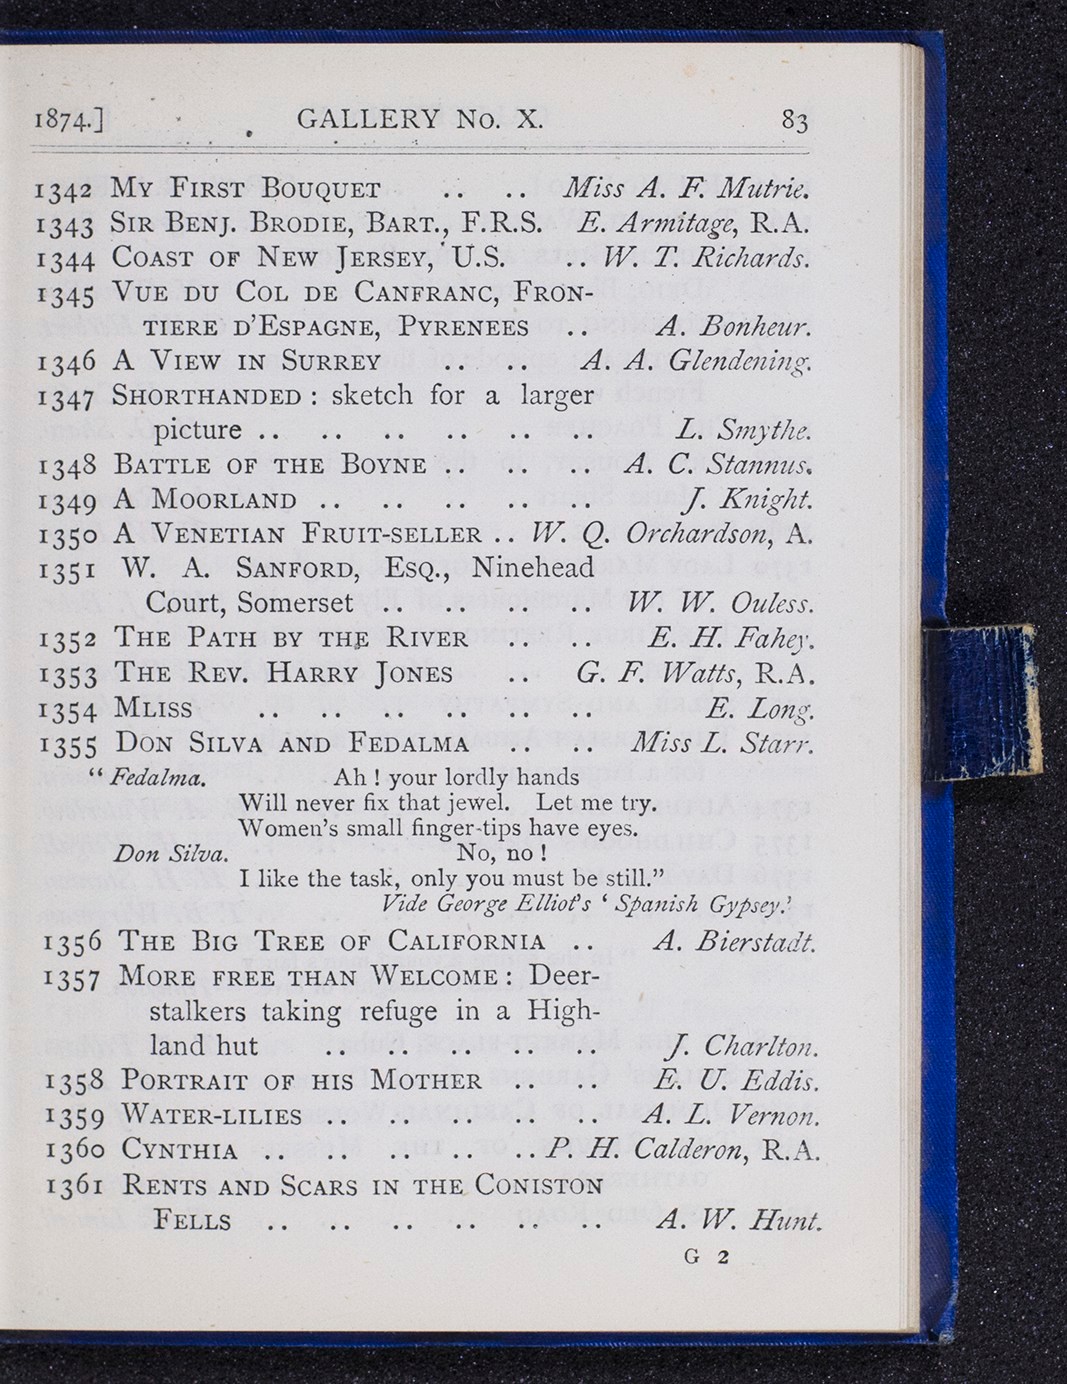 1874.] GALLERY No. X. 83
1342 My First Bouquet .. .. Miss A. F. Mutrie.
1343 Sir Benj. Brodie, Bart., F.R.S. E. Armitage, R.A.
1344 Coast of New Jersey, U.S. .. W. T. Richards.
1345 Vue du Col de Canfranc, Fron-
tiere d'Espagne, Pyrenees .. A. Bonheur.
1346 A View in Surrey .. .. A. A. Glendening.
1347 Shorthanded : sketch for a larger
picture .. .. .. .. .. .. L. Smythe.
1348 Battle of the Boyne .. .. .. A. C. Stannus.
1349 A Moorland .. .. .. .. .. J. Knight.
1350 A Venetian Fruit-seller .. W. Q. Orchardson, A.
1351 W. A. Sanford, Esq., Ninehead
Court, Somerset .. .. .. .. W. W. Ouless.
1352 The Path by the River .. .. E. H. Fahey.
1353 The Rev. Harry Jones .. G. F. Watts, R.A.
1354 Mliss .. .. .. .. .. .. E. Long.
1355 Don Silva and Fedalma .. .. Miss L. Starr.
“ Fedalma. Ah ! your lordly hands
Will never fix that jewel. Let me try.
Women's small finger-tips have eyes.
Don Silva. No, no !
I like the task, only you must be still.”
Vide George Elliot's ‘ Spanish Gypsey.’
1356 The Big Tree of California .. A. Bierstadt.
1357 More free than Welcome : Deer-
stalkers taking refuge in a High-
land hut .. .. .. .. .. J. Charlton.
1358 Portrait of his Mother .. .. E. U. Eddis.
1359 Water-lilies .. .. .. .. .. A. L. Vernon.
1360 Cynthia .. .. .. .. .. P. H. Calderon, R.A.
1361 Rents and Scars in the Coniston
Fells .. .. .. .. .. .. A. W. Hunt.
G 2